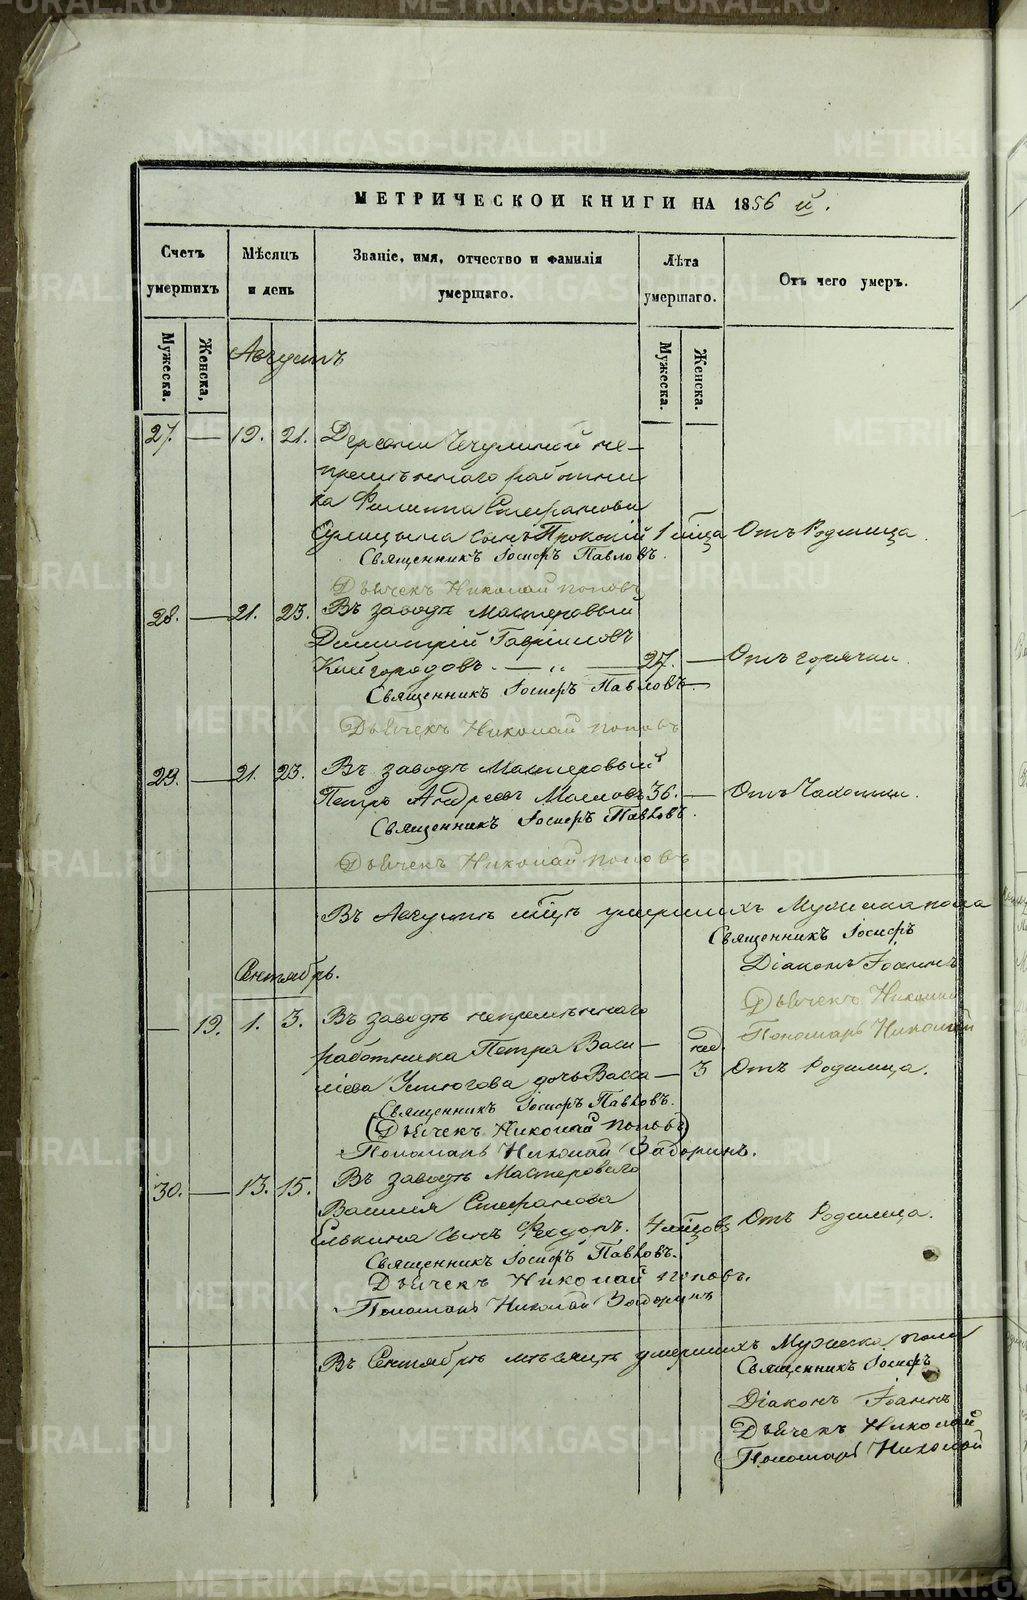 МЕТРИЧЕСКОИ КНИГИ НА 1856 й.
Счетъ умершихъ
Мѣсяцъ и день
Званіе, имя, отчество и фамилія умершаго.
Лѣта умершаго.
Отъ чего умеръ.
Мужеска.
Женска,
Мужеска.
Женска.
Августъ
27. — 19. 21. Деревни Чечулиной не-
премѣннаго работни
ка Филиппа Стефанова
сынъ Прокопій 1 мца Отъ Родимца.
Священникъ Іосифъ Павловъ.
Дьячекъ Николай Поповъ
28. — 21. 23. Въ заводѣ Мастеровый
Димитрій Гавріиловъ
Кайгородовъ. — „ — 27. — Отъ горячки.
Священникъ Іосифъ Павловъ
Дьячекъ Николай Поповъ
29. — 21. 23. Въ заводѣ Мастеровый
Петръ Андреевъ Масловъ 36. — Отъ Чахотки.
Священникъ Іосифъ Павловъ.
Дьячекъ Николай Поповъ
Въ Августѣ мцѣ умершихъ Мужеска пола
Священникъ Іосифъ
Діаконъ Іоаннъ
Дьячекъ Николай
Пономарь Николай
Сентябрь.
— 19. 1. 3. Въ заводѣ непремѣннаго
работника Петра Васи—
ліева Устюгова дочь Васса — 3 нед. Отъ Родимца.
Священникъ Іосифъ Павловъ.
(Дьячекъ Николай Поповъ)
Пономарь Николай Задоринъ.
30. — 13. 15. Въ заводѣ Мастероваго
Василія Стефанова
Елькина сынъ Ѳедоръ. 4 мцовъ Отъ Родимца.
Священникъ Іосифъ Павловъ.
Дьячекъ Николай Поповъ.
Пономарь Николай Задоринъ
Въ Сентябрѣ мѣсяцѣ умершихъ Мужеска пола
Священникъ Іосифъ
Діаконъ Іоаннъ
Дьячекъ Николай
Пономарь Николай
METRIKI.GASO-URAL.RU